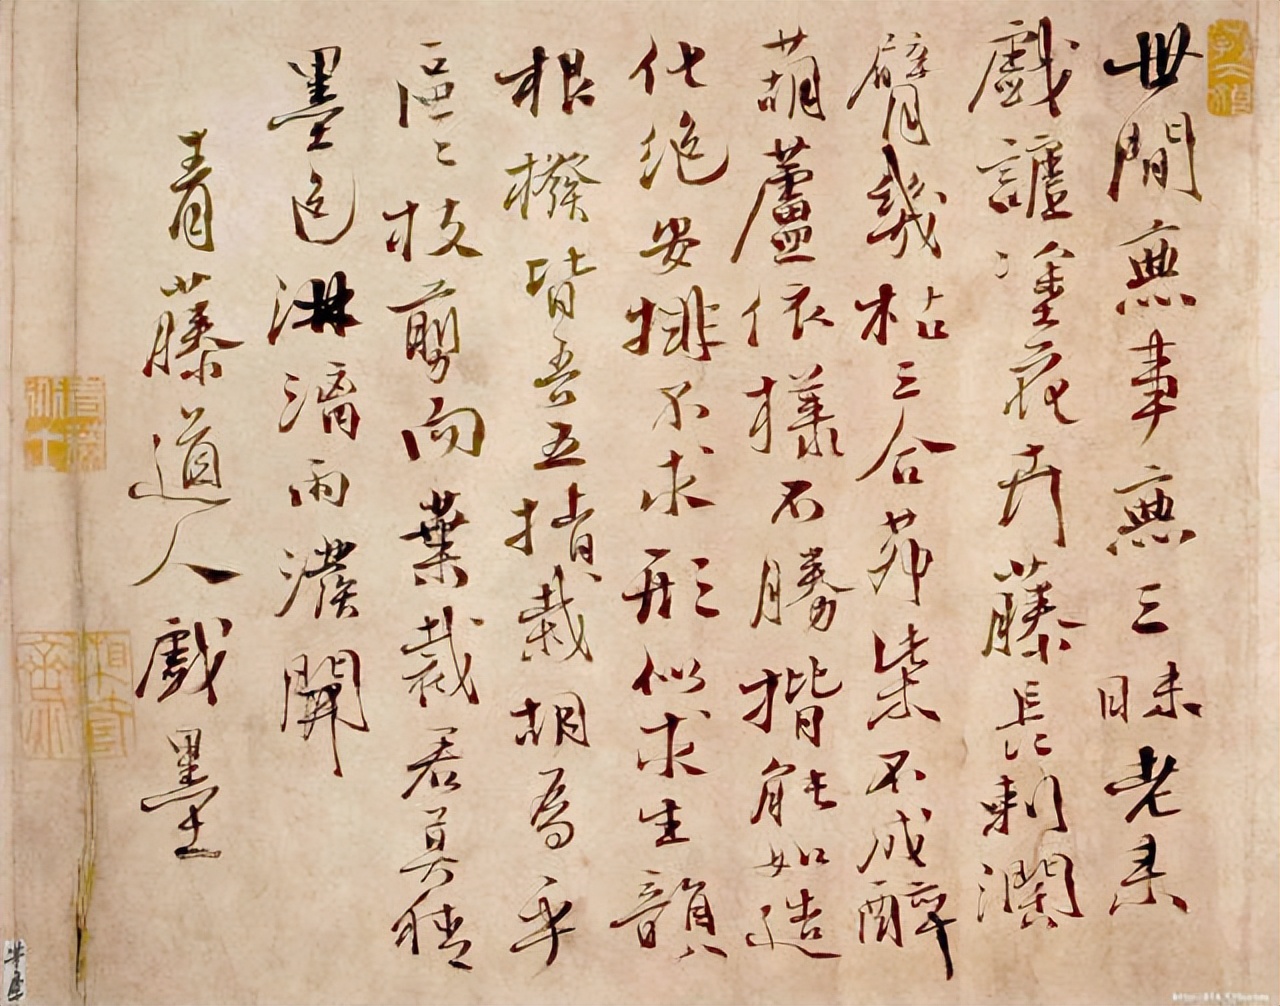 世間無事無三昧老来
戲謔塗花卉藤長刺闊
臂幾枯三合茅柴不成醉
葫蘆依樣不勝揩能如造
化絕安排不求形似求生韻
根撥皆吾五指栽胡為乎
區〻枝剪向葉裁君莫猜
墨色淋漓雨潑開
青藤道人戲墨